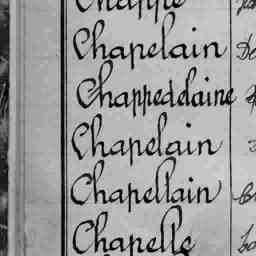 Chappe
Chapelain
Chappedelaine
Chapelain
Chapellain
Chapelle